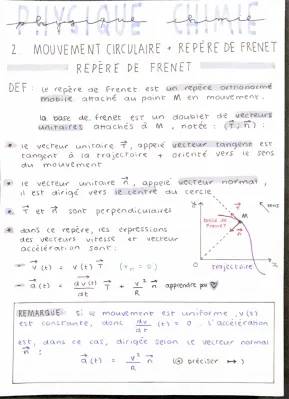 PHYSIQUE CHIMIE
physique chimie
2. MOUVEMENT CIRCULAIRE + REPÈRE DE FRENET
REPÈRE DE FRENET
DEF : Le repère de Frenet est un repère orthonormé
mobile attaché au point M en mouvement.
La base de Frenet est un doublet de vecteurs
unitaires attachés à M, notée : (T⃗, n⃗) :
le vecteur unitaire T⃗, appelé vecteur tangent est
tangent à la trajectoire + orienté vers le sens
du mouvement
le vecteur unitaire n⃗, appelé vecteur normal,
il est dirigé vers le centre du cercle
T⃗ et n⃗ sont perpendiculaires
dans ce repère, les expressions
des vecteurs vitesse et vecteur
accélération sont :
→ v⃗(t) = v(t) T⃗ (vn = 0)
→ a⃗(t) = dv(t)/dt T⃗ + v²/R n⃗ apprendre par ♥
sens
M
base de
Frenet
T⃗
n⃗
O
trajectoire
REMARQUE : Si le mouvement est uniforme, v(t)
est constante, donc dv/dt (t) = 0. L'accélération
est, dans ce cas, dirigée selon le vecteur normal
n⃗ :
a⃗(t) = v²/R n⃗ (à préciser ↦)